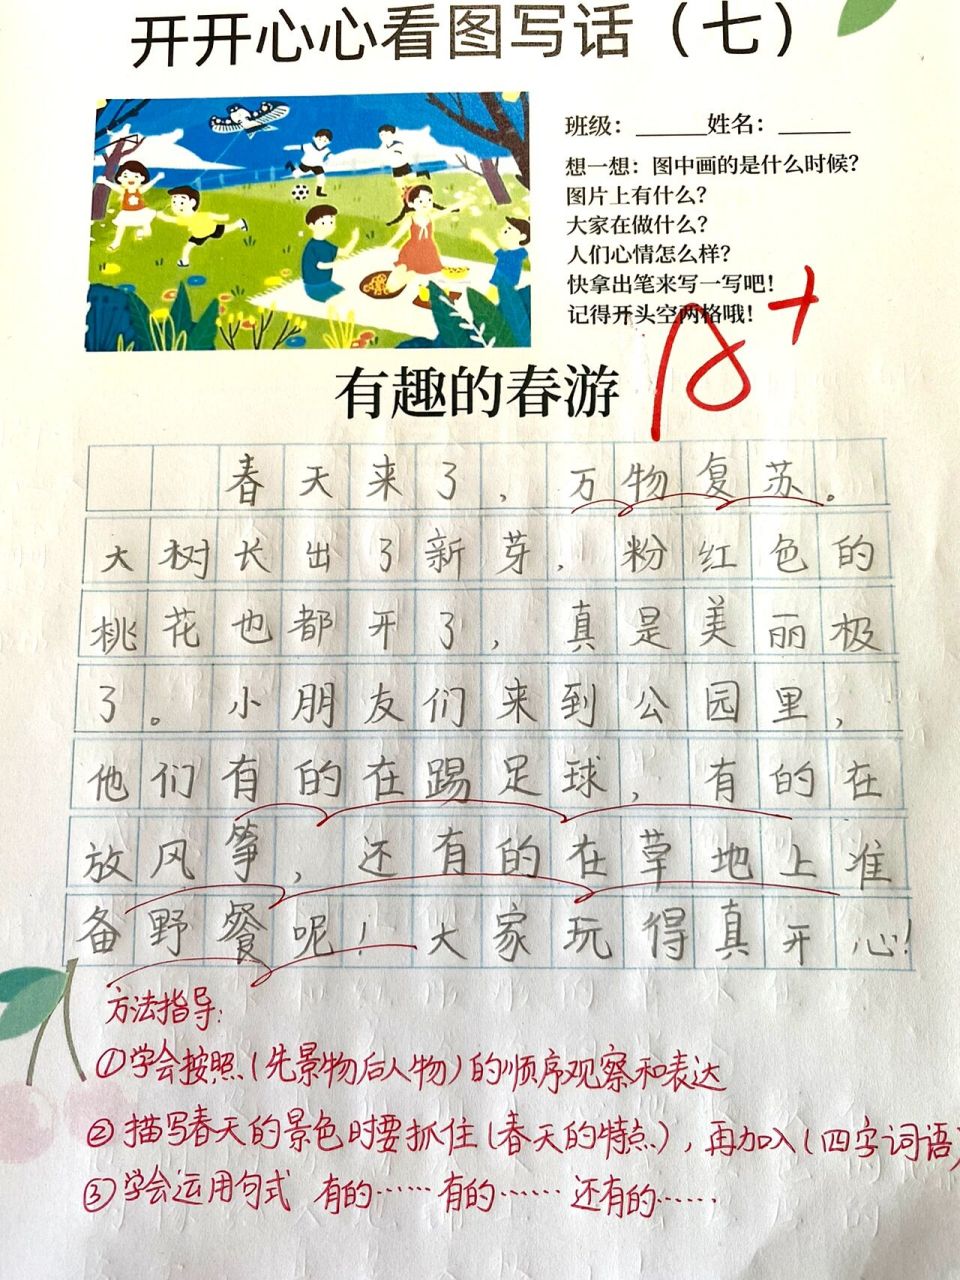 开开心心看图写话（七）
班级：______姓名：______
想一想：图中画的是什么时候？
图片上有什么？
大家在做什么？
人们心情怎么样？
快拿出笔来写一写吧！
记得开头空两格哦！
A+
有趣的春游
春天来了，万物复苏。
大树长出了新芽，粉红色的
桃花也都开了，真是美丽极
了。小朋友们来到公园里，
他们有的在踢足球，有的在
放风筝，还有的在草地上准
备野餐呢！大家玩得真开心！
方法指导：
①学会按照（先景物后人物）的顺序观察和表达
②描写春天的景色时要抓住（春天的特点），再加入（四字词语）
③学会运用句式 有的……有的……还有的……